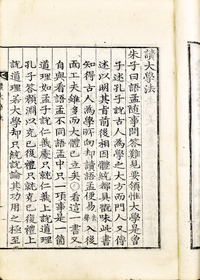 讀大學法
朱子曰語孟隨事問答難見要領惟大學是曾
子述孔子說古人爲學之大方而門人又傳
述以明其旨前後相因體統都具翫味此書
知得古人爲學所向却讀語孟便易入後
面工夫雖多而大體已立矣○看這一書又
自與看語孟不同語孟中只一項事是一箇
道理如孟子說仁義處只就仁義上說道理
孔子答顔淵以克己復禮只就克己復禮上
說道理若大學却只統說論其功用之極至